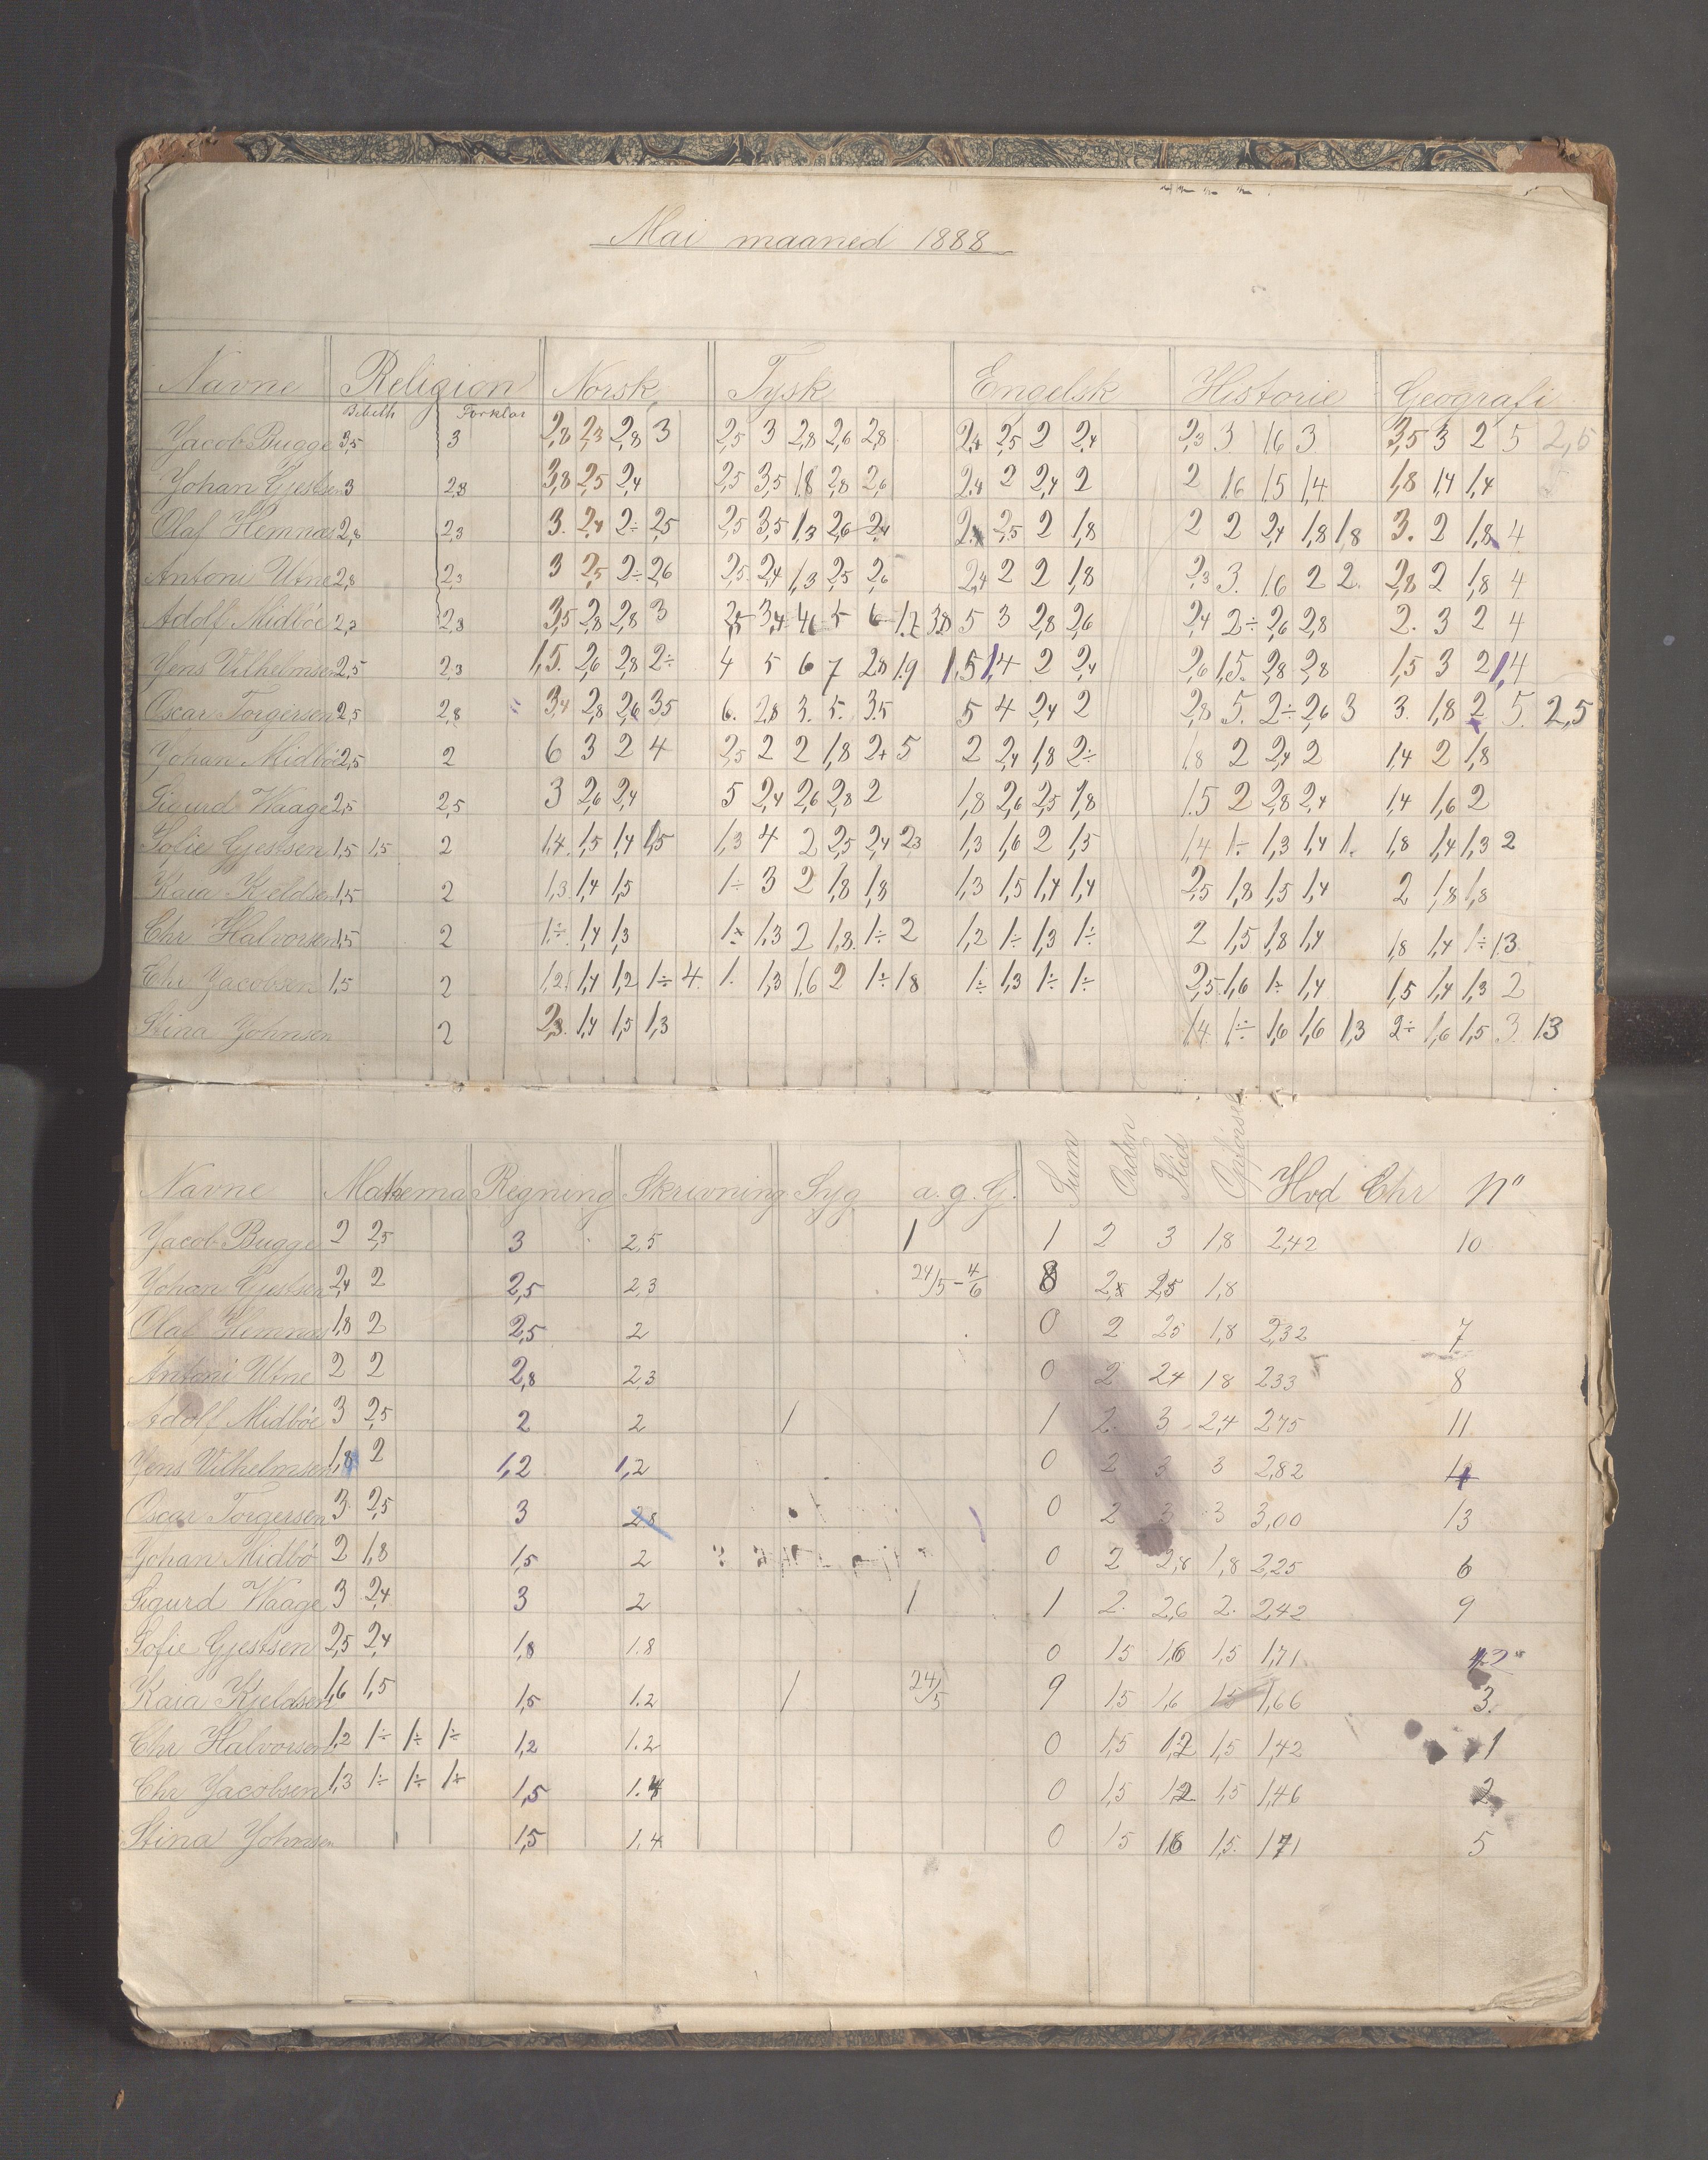 Mai maaned 1888
Navne Religion Norsk Tysk Engelsk Historie Geografi
Bibelh Forklar
Jacob Bugge 3,5 3 2,8 2,3 2,8 3 2,5 3 2,8 2,6 2,8 2,4 2,5 2 2,4 2,3 3 1,6 3 3,5 3 2 5 2,5
Johan Gjestsen 3 2,8 3,8 2,5 2,4 2,5 3,5 1,8 2,8 2,6 2,4 2 2,4 2 2 1,6 1,5 1,4 1,8 1,4 1,4
Olaf Hemnæs 2,8 2,3 3. 2,4 2÷ 2,5 2,5 3,5 1,3 2,6 2,4 2,5 2 1,8 2 2 2,4 1,8 1,8 3. 2 1,8 4
Antoni Utne 2,8 2,3 3 2,5 2÷ 2,6 2,5 2,4 1,3 2,5 2,6 2,4 2 2 1,8 2,3 3. 1,6 2 2. 2,8 2 1,8 4
Adolf Midböe 2,8 3,5 2,8 2,8 3 5 3 2,8 2,6 2,4 2÷ 2,6 2,8 2. 3 2 4
Jens Vilhelmsen 2,5 2,3 1,5. 2,6 2,8 2÷ 4 5 6 7 2,8 1,9 1,5 1,4 2 2,4 2,6 1,5. 2,8 2,8 1,5 3 2 1,4
Oscar Torgersen 2,5 2,8 3,4 2,8 2,6 3,5 6. 2,8 3. 5. 3,5 5 4 2,4 2 2,8 5. 2÷ 2,6 3 3. 1,8 2 5. 2,5
Johan Midböe 2,5 2 6 3 2 4 2,5 2 2 1,8 2+ 5 2 2,4 1,8 2÷ 1,8 2 2,4 2 1,4 2 1,8
Sigurd Waage 2,5 2,5 3 2,6 2,4 5 2,4 2,6 2,8 2 1,8 2,6 2,5 1,8 1.5 2 2,8 2,4 1,4 1,6 2
Sofie Gjestsen 1,5 1,5 2 1,4. 1,5 1,4 1,5 1,3 4 2 2,5 2,4 2,3 1,3 1,6 2 1,5 1,4 1÷ 1,3 1,4 1. 1,8 1,4 1,3 2
Kaia Kjeldsen 1,5 2 1,3 1,4 1,5 1÷ 3 2 1,8 1,8 1,3 1,5 1,4 1,4 2,5 1,8 1,5 1,4 2 1,8 1,8
Chr Halvorsen 1,5 2 1÷ 1,4 1,3 1÷ 1,3 2 1,8. 1÷ 2 1,2 1÷ 1,3 1÷ 2 1,5 1,8 1,4 1,8 1,4 1÷ 1,3
Chr Jacobsen 1,5 2 1,2. 1,4 1,2 1÷ 4. 1. 1,3 1,6 2 1÷ 1,8 1÷ 1,3 1÷ 1÷ 2,5 1,6 1÷ 1,4 1,5 1,4 1,3 2
Stina Johnsen 2 2,8. 1,4 1,5 1,3 1,4 1÷ 1,6 1,6 1,3 2÷ 1,6 1,5 3. 1,3
Navne Mathema Regning Skrivning Syg a.g.G. Sum Orden Flid Opförsel Hvd Chr No
Jacob Bugge 2 2,5 3 2,5 1 1 2 3 1,8 2,42 10
Johan Gjestsen 2,4 2 2,5 2,3 24/5 - 4/6 8 2,5 1,8
Olaf Hemnæs 1,8 2 2,5 2 0 2 2,5 1,8 2,32 7
Antoni Utne 2 2 2,8 2,3 0 2 2,4 1,8 2,33 8
Adolf Midböe 3 2,5 2 2 1 1 2. 3 2,4 2,75 11
Jens Vilhelmsen 1,8 2 1,2 1,2 0 2 3 3 2,82
Oscar Torgersen 3 2,5 3 2,8 0 2 3 3 3,00 13
Johan Midbö 2 1,8 1,5 2 0 2 2,8 1,8 2,25 6
Sigurd Waage 3 2,4 3 2 1 1 2. 2,6 2. 2,42 9
Sofie Gjestsen 2,5 2,4 1,8 1.8 0 1,5 1,6 1,5 1,71
Kaia Kjeldsen 1,6 1,5 1,5 1.2 1 24/5 9 1,5 1,6 1,5 1,66 3.
Chr Halvorsen 1,2 1÷ 1÷ 1÷ 1,2 1.2 0 1,5 1,2 1,5 1,42 1
Chr Jacobsen 1,3 1÷ 1÷ 1÷ 1,5 1.4 0 1,5 1,2 1,5 1,46 2
Stina Johnsen 1,5 1.4 0 1,5 1,6 1,5. 1,71 5